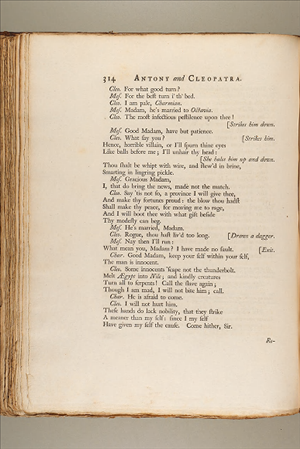 314 ANTONY and CLEOPATRA.
Cleo. For what good turn?
Mes. For the best turn i' th' bed.
Cleo. I am pale, Charmian.
Mes. Madam, he's married to Octavia.
Cleo. The most infectious pestilence upon thee!
[Strikes him down.
Mes. Good Madam, have but patience.
Cleo. What say you? [Strikes him.
Hence, horrible villain, or I'll spurn thine eyes
Like balls before me; I'll unhair thy head:
[She hales him up and down.
Thou shalt be whipt with wire, and stew'd in brine,
Smarting in lingring pickle.
Mes. Gracious Madam,
I, that do bring the news, made not the match.
Cleo. Say 'tis not so, a province I will give thee,
And make thy fortunes proud: the blow thou hadst
Shall make thy peace, for moving me to rage,
And I will boot thee with what gift beside
Thy modesty can beg.
Mes. He's married, Madam.
Cleo. Rogue, thou hast liv'd too long. [Draws a dagger.
Mes. Nay then I'll run:
What mean you, Madam? I have made no fault. [Exit.
Char. Good Madam, keep your self within your self,
The man is innocent.
Cleo. Some innocents 'scape not the thunderbolt.
Melt Ægypt into Nile; and kindly creatures
Turn all to serpents! Call the slave again;
Though I am mad, I will not bite him; call.
Char. He is afraid to come.
Cleo. I will not hurt him.
These hands do lack nobility, that they strike
A meaner than my self: since I my self
Have given my self the cause. Come hither, Sir.
Re-